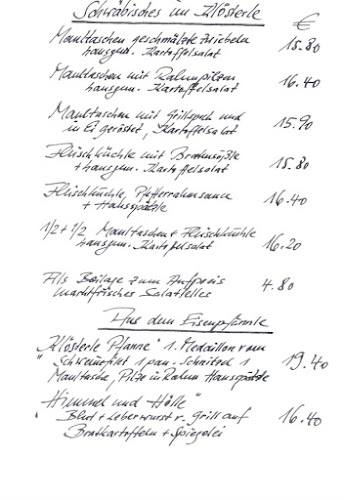 Schwäbisches im Klösterle €
Maultaschen geschmälzte Zwiebeln
hausgem. Kartoffelsalat 15.80
Maultaschen mit Rahmpilzen
hausgem. Kartoffelsalat 16.40
Maultaschen mit Grillspeck und
in Ei geröstet, Kartoffelsalat 15.90
Fleischküchle mit Bratensößle
+ hausgem. Kartoffelsalat 15.80
Fleischküchle, Pfefferrahmsauce
+ Hausspätzle 16.40
1/2 + 1/2 Maultaschen + Fleischküchle
hausgem. Kartoffelsalat 16.20
Als Beilage zum Aufpreis
marktfrisches Salattelles 4.80
Aus dem Eisenpfännle
"Klösterle Pfanne" 1. Medaillon vom
Schweinefilet 1 pan. Schnitzel 1
Maultasche, Pilze in Rahm Hausspätzle 19.40
"Himmel und Hölle"
Blut + Leberwurst v. Grill auf
Bratkartoffeln + Spiegelei 16.40